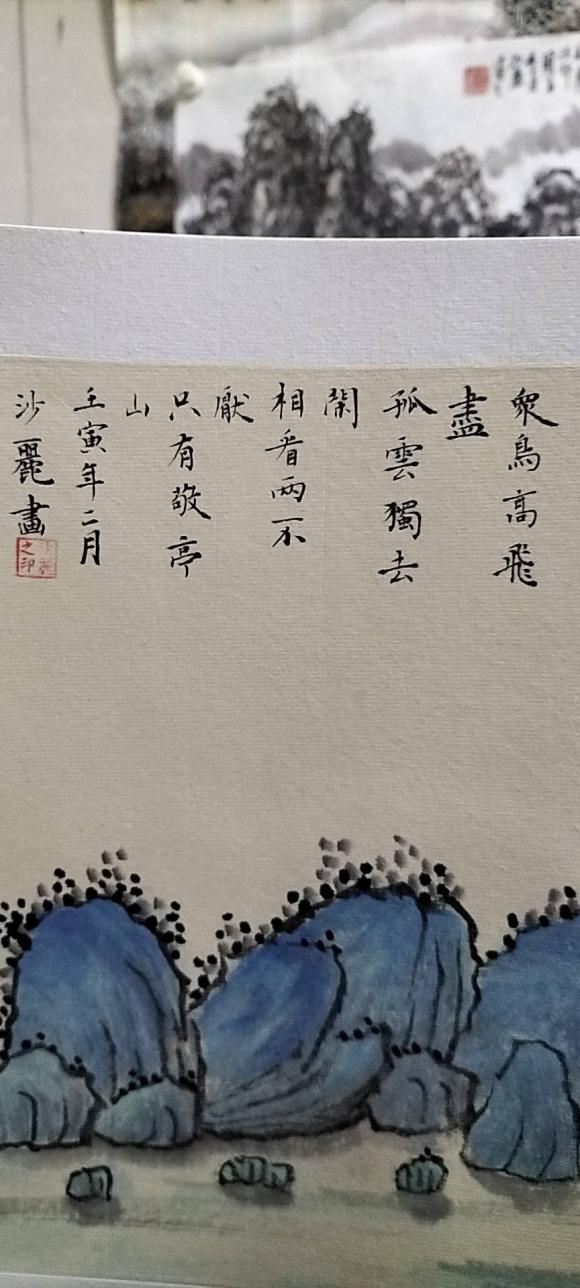 衆鳥高飛
盡
孤雲獨去
閑
相看两不
厭
只有敬亭
山
壬寅年二月
沙麗畫
之印